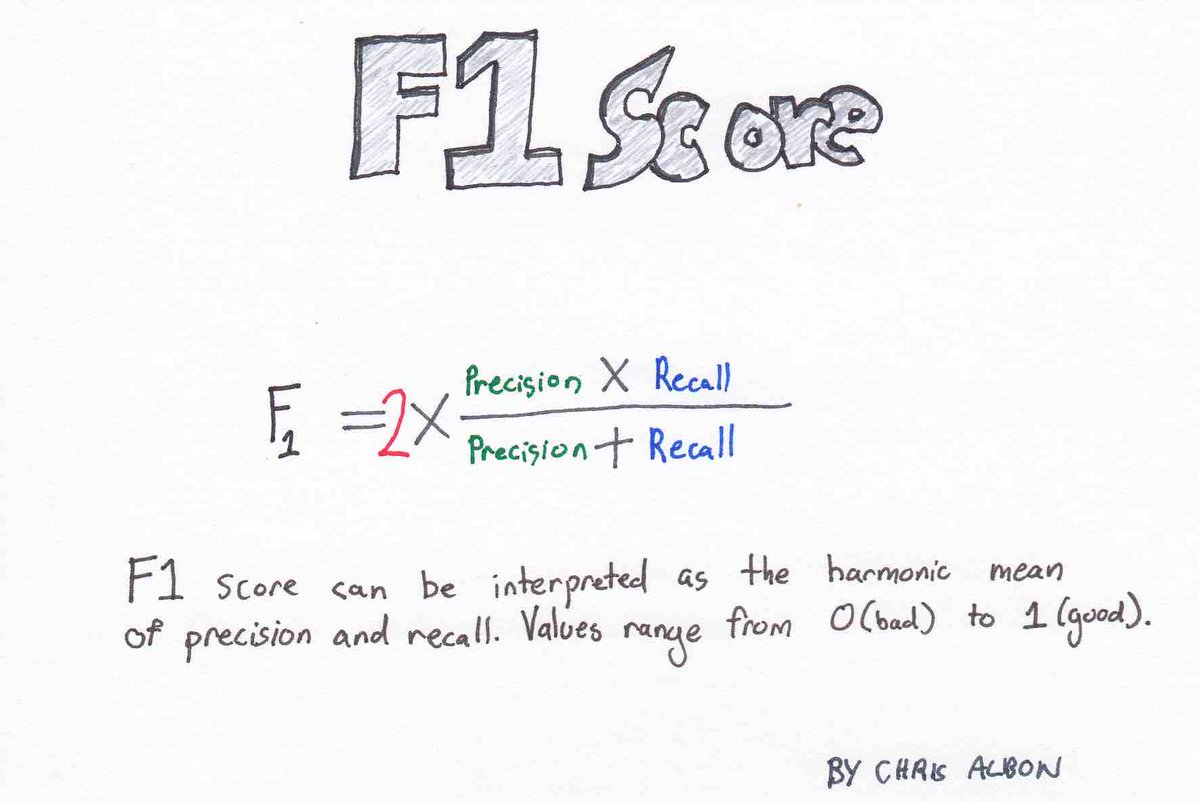 F1 Score
Precision X Recall
F1 = 2 X
Precision + Recall
F1 Score can be interpreted as the harmonic mean
of precision and recall. Values range from 0 (bad) to 1 (good).
BY CHRIS ALBON